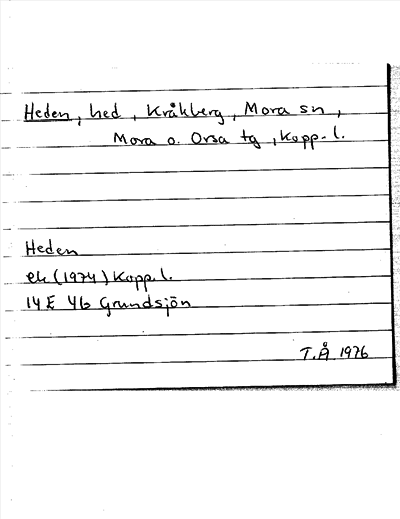 Heden, hed, Kråkberg, Mora sn,
Mora o. Orsa tg, Kopp. l.
Heden
ek (1974) Kopp. l.
14 E 4b Grundsjön
T.Å 1976